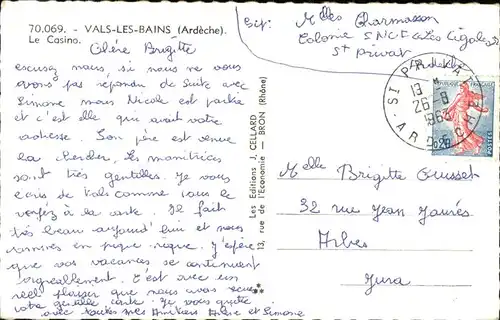 70.069. - VALS-LES-BAINS (Ardèche).
Le Casino.
Chère Brigitte
excusez nous si nous ne vous
avons pas répondu de Suite avec
Simone mais Nicole est partie
et c'est elle qui avait votre
adresse. Son père est venue
la chercher, les monitrices
sont très gentilles. Je vous
écris de Vals comme vous le
verrez à la carte. Il fait
très beau aujourd'hui et nous
sommes en pique nique. J'espère
que vos vacances se continuent
agréablement. C'est avec un
réel plaisir que nous avons reçu
votre gentille carte. Je vous quitte
avec toutes mes Amitiés Anne et Simone
Les Editions J. CELLARD
13, rue de l'Economie — BRON (Rhône)
Exp: Melles Charmasson
Colonie SNCF les Cigales
St Privat
Ardèche
ST PRIVAT
13 H
26-8
1963
ARDECHE
0,20
POSTES
Melle Brigitte Ousset
32 rue Jean Jaurès
Arbois
Jura